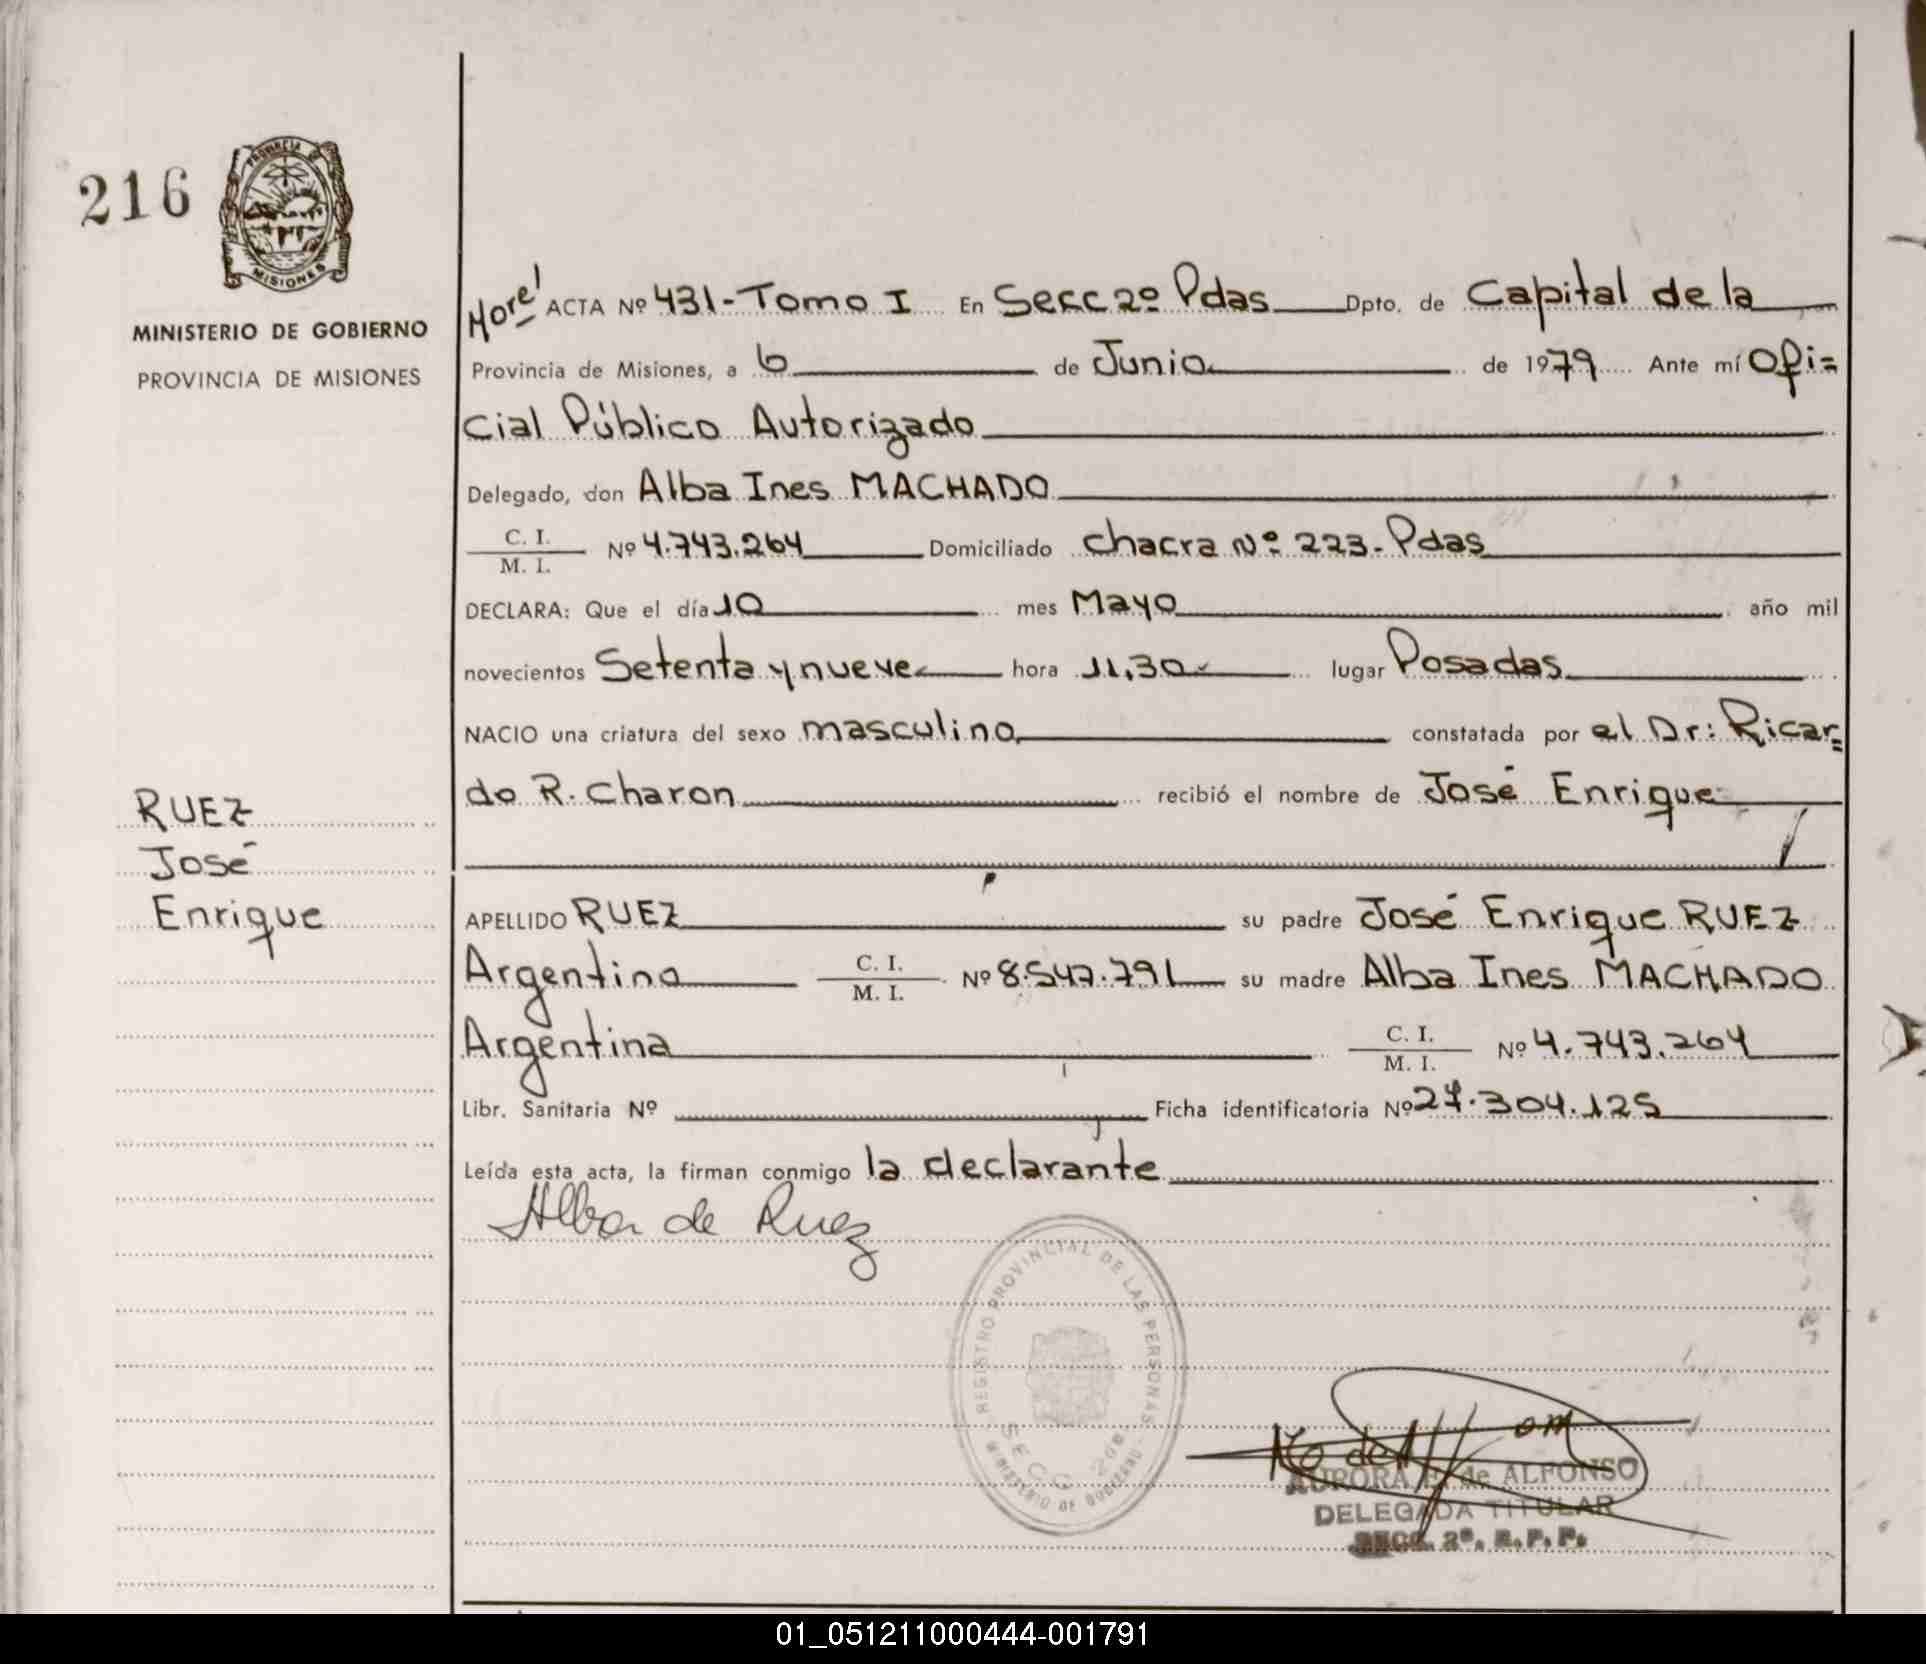 216
PROVINCIA DE
MISIONES
MINISTERIO DE GOBIERNO
PROVINCIA DE MISIONES
ACTA Nº 431-Tomo I En Secc 2º Pdas Dpto. de Capital de la
Provincia de Misiones, a 6 de Junio de 1979 Ante mí Ofi=
cial Público Autorizado
Delegado, don Alba Ines MACHADO
C. I.
M. I.
Nº 4.743.264 Domiciliado chacra Nº 223- Pdas
DECLARA: Que el día 10 mes Mayo año mil
novecientos Setenta y nueve hora 11,30 lugar Posadas
NACIO una criatura del sexo masculino constatada por el Dr: Ricar=
do R. Charon recibió el nombre de José Enrique
RUEZ
José
Enrique
APELLIDO RUEZ su padre José Enrique RUEZ
Argentino C. I. M. I. Nº 8.547.791 su madre Alba Ines MACHADO
Argentina C. I. M. I. Nº 4.743.264
Libr. Sanitaria Nº Ficha identificatoria Nº 27.304.125
Leída esta acta, la firman conmigo la declarante
Alba de Ruez
REGISTRO PROVINCIAL DE LAS PERSONAS
SECC 2da
MINISTERIO DE GOBIERNO
AURORA de ALFONSO
DELEGADA TITULAR
SECC. 2ª. R. P. P.
01_051211000444-001791